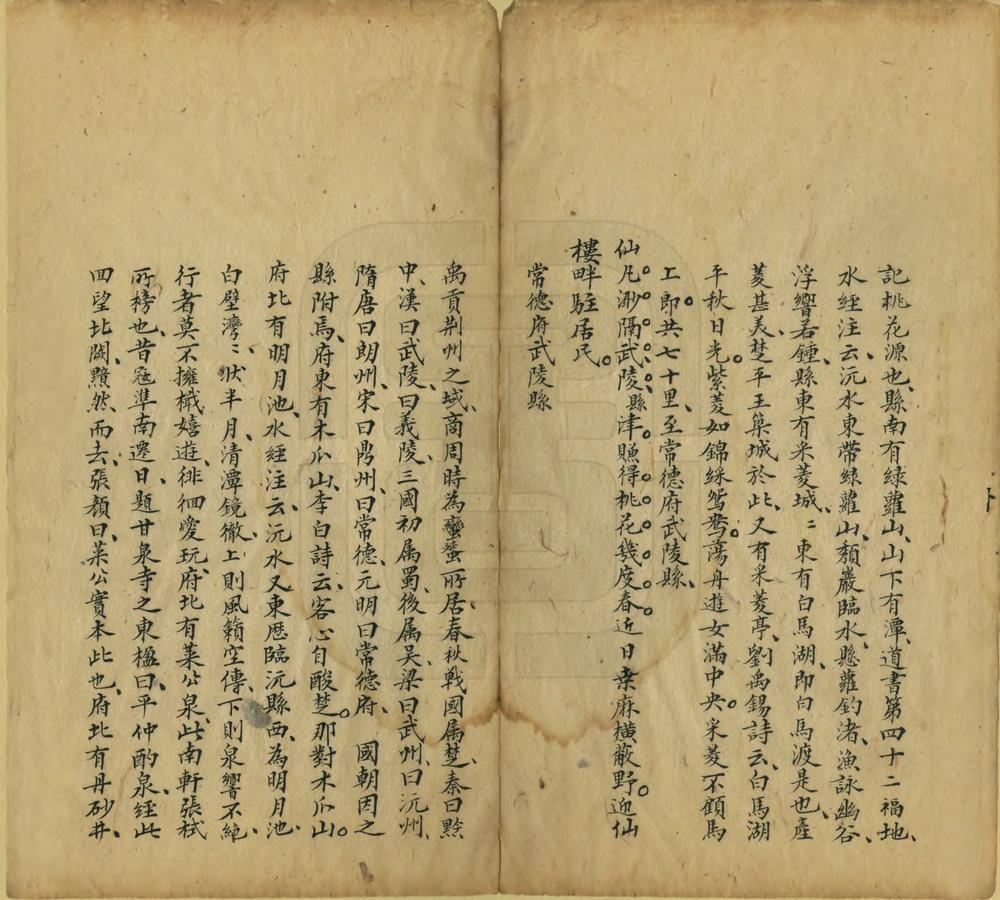 記桃花源也、縣南有綠蘿山、山下有潭、道書第四十二福地、
水經注云、沅水東帶綠蘿山、頹巖臨水、懸蘿釣渚、漁詠幽谷、
浮響若鍾、縣東有采菱城、〻東有白馬湖、即白馬渡是也、產
菱甚美、楚平王築城於此、又有采菱亭、劉禹錫詩云、白馬湖
平秋日光。紫菱如錦綵鴛鴦。蕩舟遊女滿中央。采菱不顧馬
上郎。共七十里、至常德府武陵縣、
仙凡渺隔武陵縣津賺得桃花幾度春近日桑麻橫蔽野。迎仙
樓畔駐居民。
常德府武陵縣
禹貢荆州之域、商周時為蠻蜑所居、春秋戰國属楚、秦曰黔
中、漢曰武陵、曰義陵、三國初属蜀、後属吴、梁曰武州、曰沅州、
隋唐曰朗州、宋曰鼎州、曰常德、元明曰常德府、 國朝因之
縣附焉、府東有木瓜山、李白詩云、客心自酸楚。那對木瓜山。
府北有明月池、水經注云、沅水又東歷臨沅縣西、為明月池、
白壁灣、〻狀半月、清潭鏡徹、上則風籟空傳、下則泉響不絶、
行者莫不擁檝嬉遊、徘徊愛玩、府北有萊公泉、此南軒張栻
所榜也、昔寇準南遷日、題甘泉寺之東楹曰、平仲酌泉、經此
回望北闕、黯然、而去、張顏曰、萊公實本此也、府北有丹砂井、